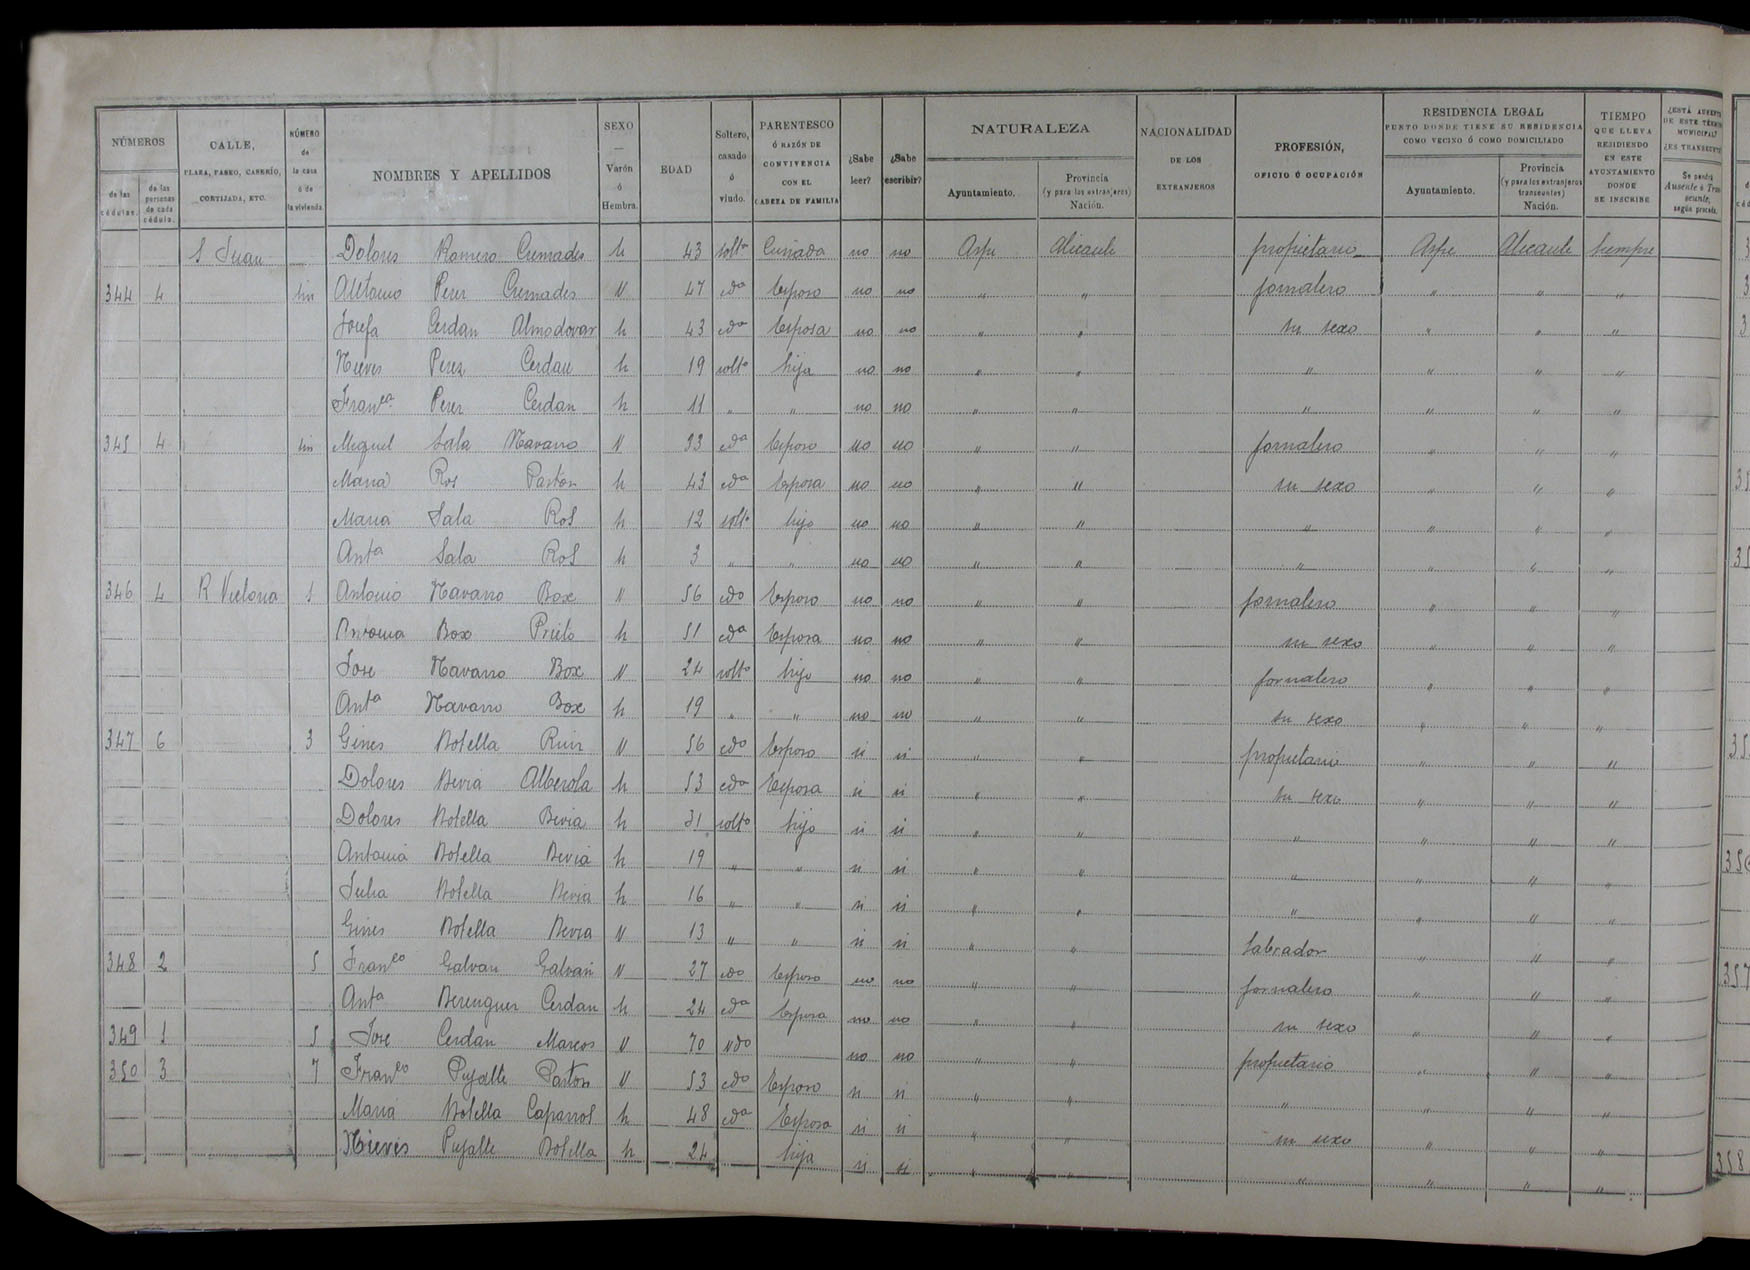 NÚMEROS
de las cédulas.
de las personas de cada cédula.
CALLE,
PLAZA, PASEO, CASERÍO,
CORTIJADA, ETC.
NÚMERO de la casa ó de la vivienda.
NOMBRES Y APELLIDOS
SEXO — Varón ó Hembra.
EDAD
Soltero, casado ó viudo.
PARENTESCO Ó RAZÓN DE CONVIVENCIA CON EL CABEZA DE FAMILIA
¿Sabe leer?
¿Sabe escribir?
NATURALEZA
Ayuntamiento.
Provincia (y para los extranjeros) Nación.
NACIONALIDAD DE LOS EXTRANJEROS
PROFESIÓN,
OFICIO Ó OCUPACIÓN
RESIDENCIA LEGAL
PUNTO DONDE TIENE SU RESIDENCIA
COMO VECINO Ó COMO DOMICILIADO
Ayuntamiento.
Provincia (y para los extranjeros transeuntes) Nación.
TIEMPO QUE LLEVA RESIDIENDO EN ESTE AYUNTAMIENTO DONDE SE INSCRIBE
¿ESTÁ AUSENTE DE ESTE TÉRMINO MUNICIPAL?
¿ES TRANSEUNTE
Se pondrá Ausente ó Transeunte, según proceda.
S Juan Dolores Romero Cremades h 43 solta Cuñada no no Aspe Alicante propietario Aspe Alicante Siempre
344 4 sin Antonio Perez Cremades V 47 cdo Esposo no no " " jornalero " " "
Josefa Cerdan Almodovar h 43 cda Esposa no no " " su sexo " " "
Nieves Perez Cerdan h 19 solta hija no no " " " " " "
Franca Perez Cerdan h 11 " " no no " " " " " "
345 4 sin Miguel Sala Navarro V 33 cda Esposo no no " " jornalero " " "
Maria Ros Pastor h 43 cda Esposa no no " " su sexo " " "
Maria Sala Ros h 12 solto hijo no no " " " " " "
Anta Sala Ros h 3 " " no no " " " " " "
346 4 R Victoria 1 Antonio Navarro Box V 56 cdo Esposo no no " " jornalero " " "
Antonia Box Prieto h 51 cda Esposa no no " " su sexo " " "
Jose Navarro Box V 24 solto hijo no no " " jornalero " " "
Anta Navarro Box h 19 " " no no " " su sexo " " "
347 6 3 Gines Botella Ruiz V 56 cdo Esposo si si " " propietario " " "
Dolores Bevia Alberola h 53 cda Esposa si si " " su sexo " " "
Dolores Botella Bevia h 31 solto hijo si si " " " " " "
Antonia Botella Bevia h 19 " " si si " " " " " "
Julia Botella Bevia h 16 " " si si " " " " " "
Gines Botella Bevia V 13 " " si si " " Labrador " " "
348 2 5 Franco Galvan Galvan V 27 cdo Esposo no no " " jornalero " " "
Anta Berenguer Cerdan h 24 cda Esposa no no " " su sexo " " "
349 1 5 Jose Cerdan Marcos V 70 vdo no no " " propietario " " "
350 3 7 Franco Pujalte Pastor V 53 cdo Esposo si si " " " " " "
Maria Botella Caparros h 48 cda Esposa si si " " su sexo " " "
Nieves Pujalte Botella h 24 hija si si " " " " " "